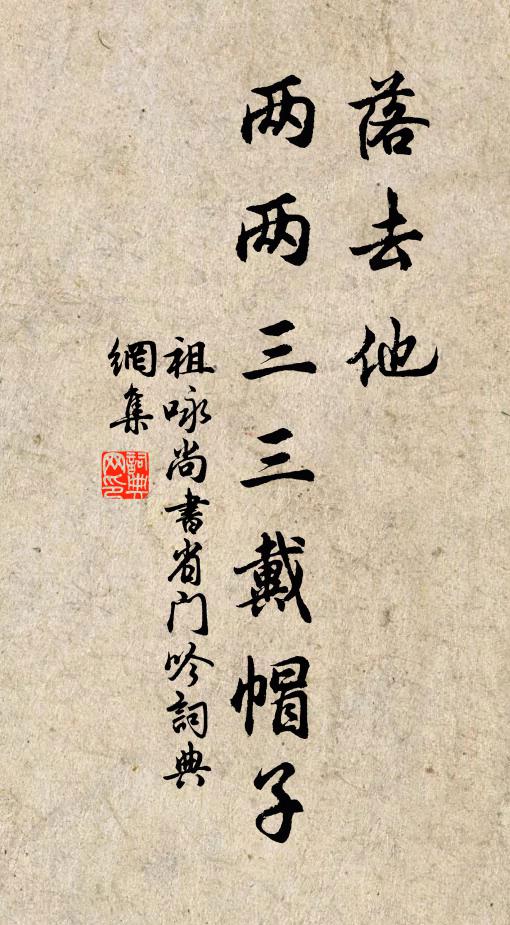 落去他
两两三三戴帽子
祖咏尚書省门吟詞典
網集
詞典
网印